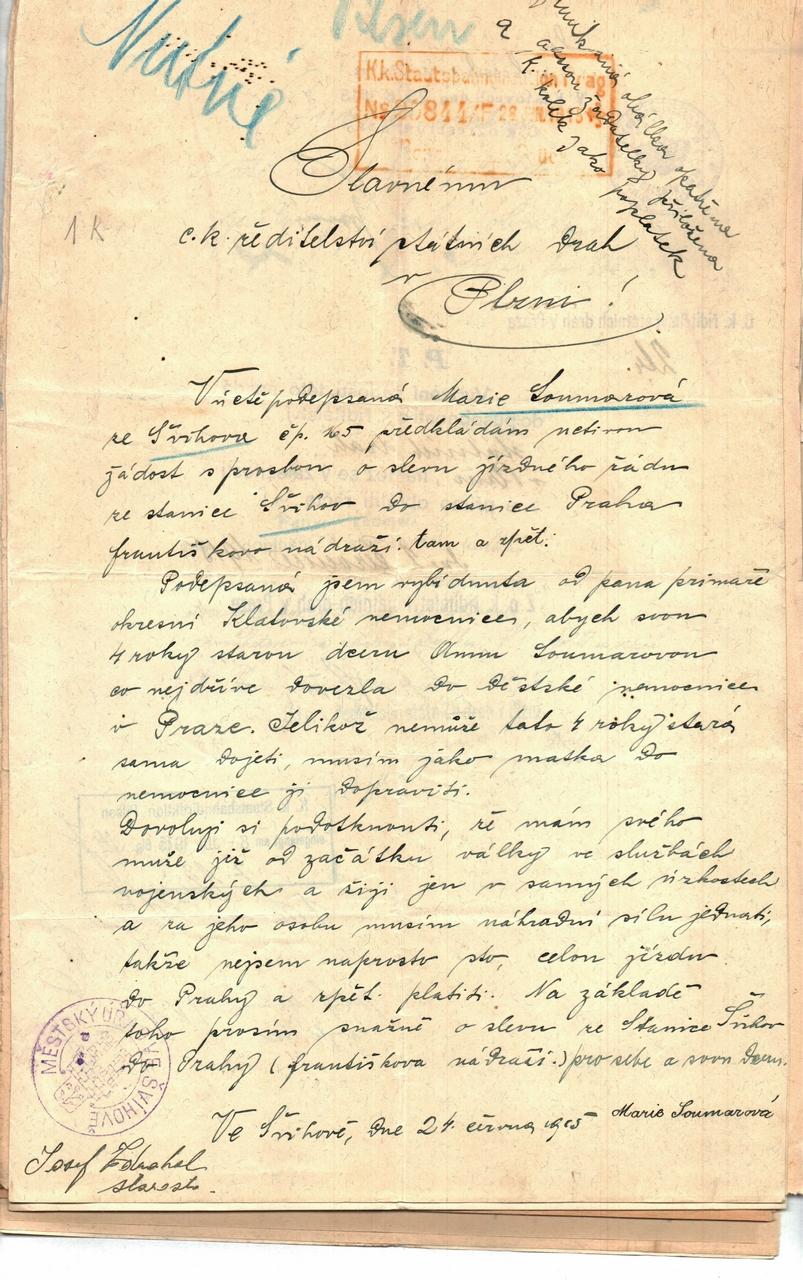 Nutné
Pilsen
a
známkami obálka opatřena
1 K. kolek jako poplatek
přiložena
K.k. Staatsbahndirektion Prag
Slavnému
1 K
c. k. ředitelství státních drah
v
Plzni!
V úctě podepsaná Marie Soumarová
ze Švihova čp. 165 předkládám uctivou
žádost s prosbou o slevu jízdného řádu
ze stanice Švihov do stanice Praha
františkovo nádraží. tam a zpět.
Podepsaná jsem vybídnuta od pana primáře
okresní Klatovské nemocnice, abych svou
4 roky starou dceru Annu Soumarovou
co nejdříve dovezla do dětské nemocnice
v Praze. Jelikož nemůže tato 4 roky stará
sama dojeti, musím jako matka do
nemocnice ji dopraviti.
Dovoluji si podotknouti, že mám svého
muže již od začátku války ve službách
vojenských a žiji jen v samých úzkostech
a za jeho osobu musím náhradní sílu jednati,
takže nejsem naprosto sto, celou jízdu
do Prahy a zpět platiti. Na základě
toho prosím snažně o slevu ze Stanice Švihov
do Prahy (františkova nádraží.) pro sebe a svou dceru.
Ve Švihově, dne 24. června 1915 Marie Soumarová
MĚSTSKÝ ÚŘAD VE ŠVIHOVĚ
Josef Zdrahal
starosta.